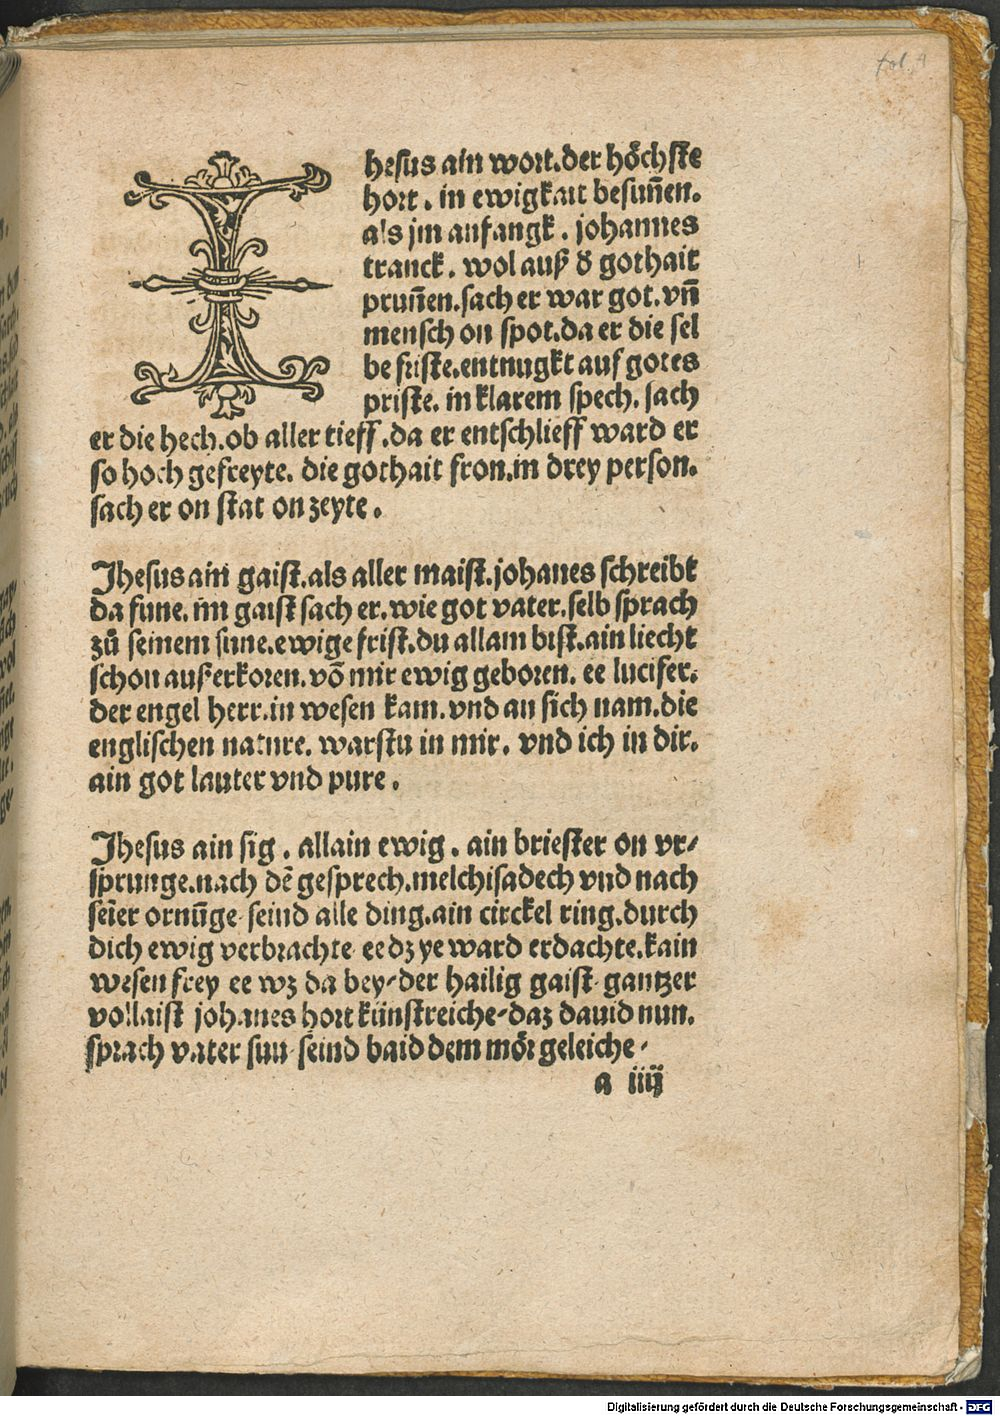 fol. 4
Ihesus ain wort. der höchste
hort. in ewigkait besuñen.
als jm anfangk. johannes
tranck. wol auß d̕ gothait
pruñen. sach er war got. vñ
mensch on spot. da er die sel
be friste. entnugkt auf gotes
priste. in klarem spech. sach
er die hech. ob aller tieff. da er entschlieff ward er
so hoch gefreyte. die gothait fron. in drey person.
sach er on stat on zeyte.
Jhesus ain gaist. als aller maist. johanes schreibt
da fune. im gaist sach er. wie got vater. selb sprach
zů seinem sune. ewige frist. du allain bist. ain liecht
schon außerkoren. võ mir ewig geboren. ee lucifer.
der engel herr. in wesen kam. vnd an sich nam. die
englischen nature. warstu in mir. vnd ich in dir.
ain got lauter vnd pure.
Jhesus ain sig. allain ewig. ain briester on vr⸗
sprunge. nach dē gesprech. melchisadech vnd nach
seīer ornūge. seind alle ding. ain circkel ring. durch
dich ewig verbrachte. ee dz ye ward erdachte. kain
wesen frey ee wz da bey⸗der hailig gaist. gantzer
vollaist johanes hort künstreiche⸗daz dauid nun.
sprach vater sun. seind baid dem mör geleiche⸗
a iiij
Digitalisierung gefördert durch die Deutsche Forschungsgemeinschaft - DFG